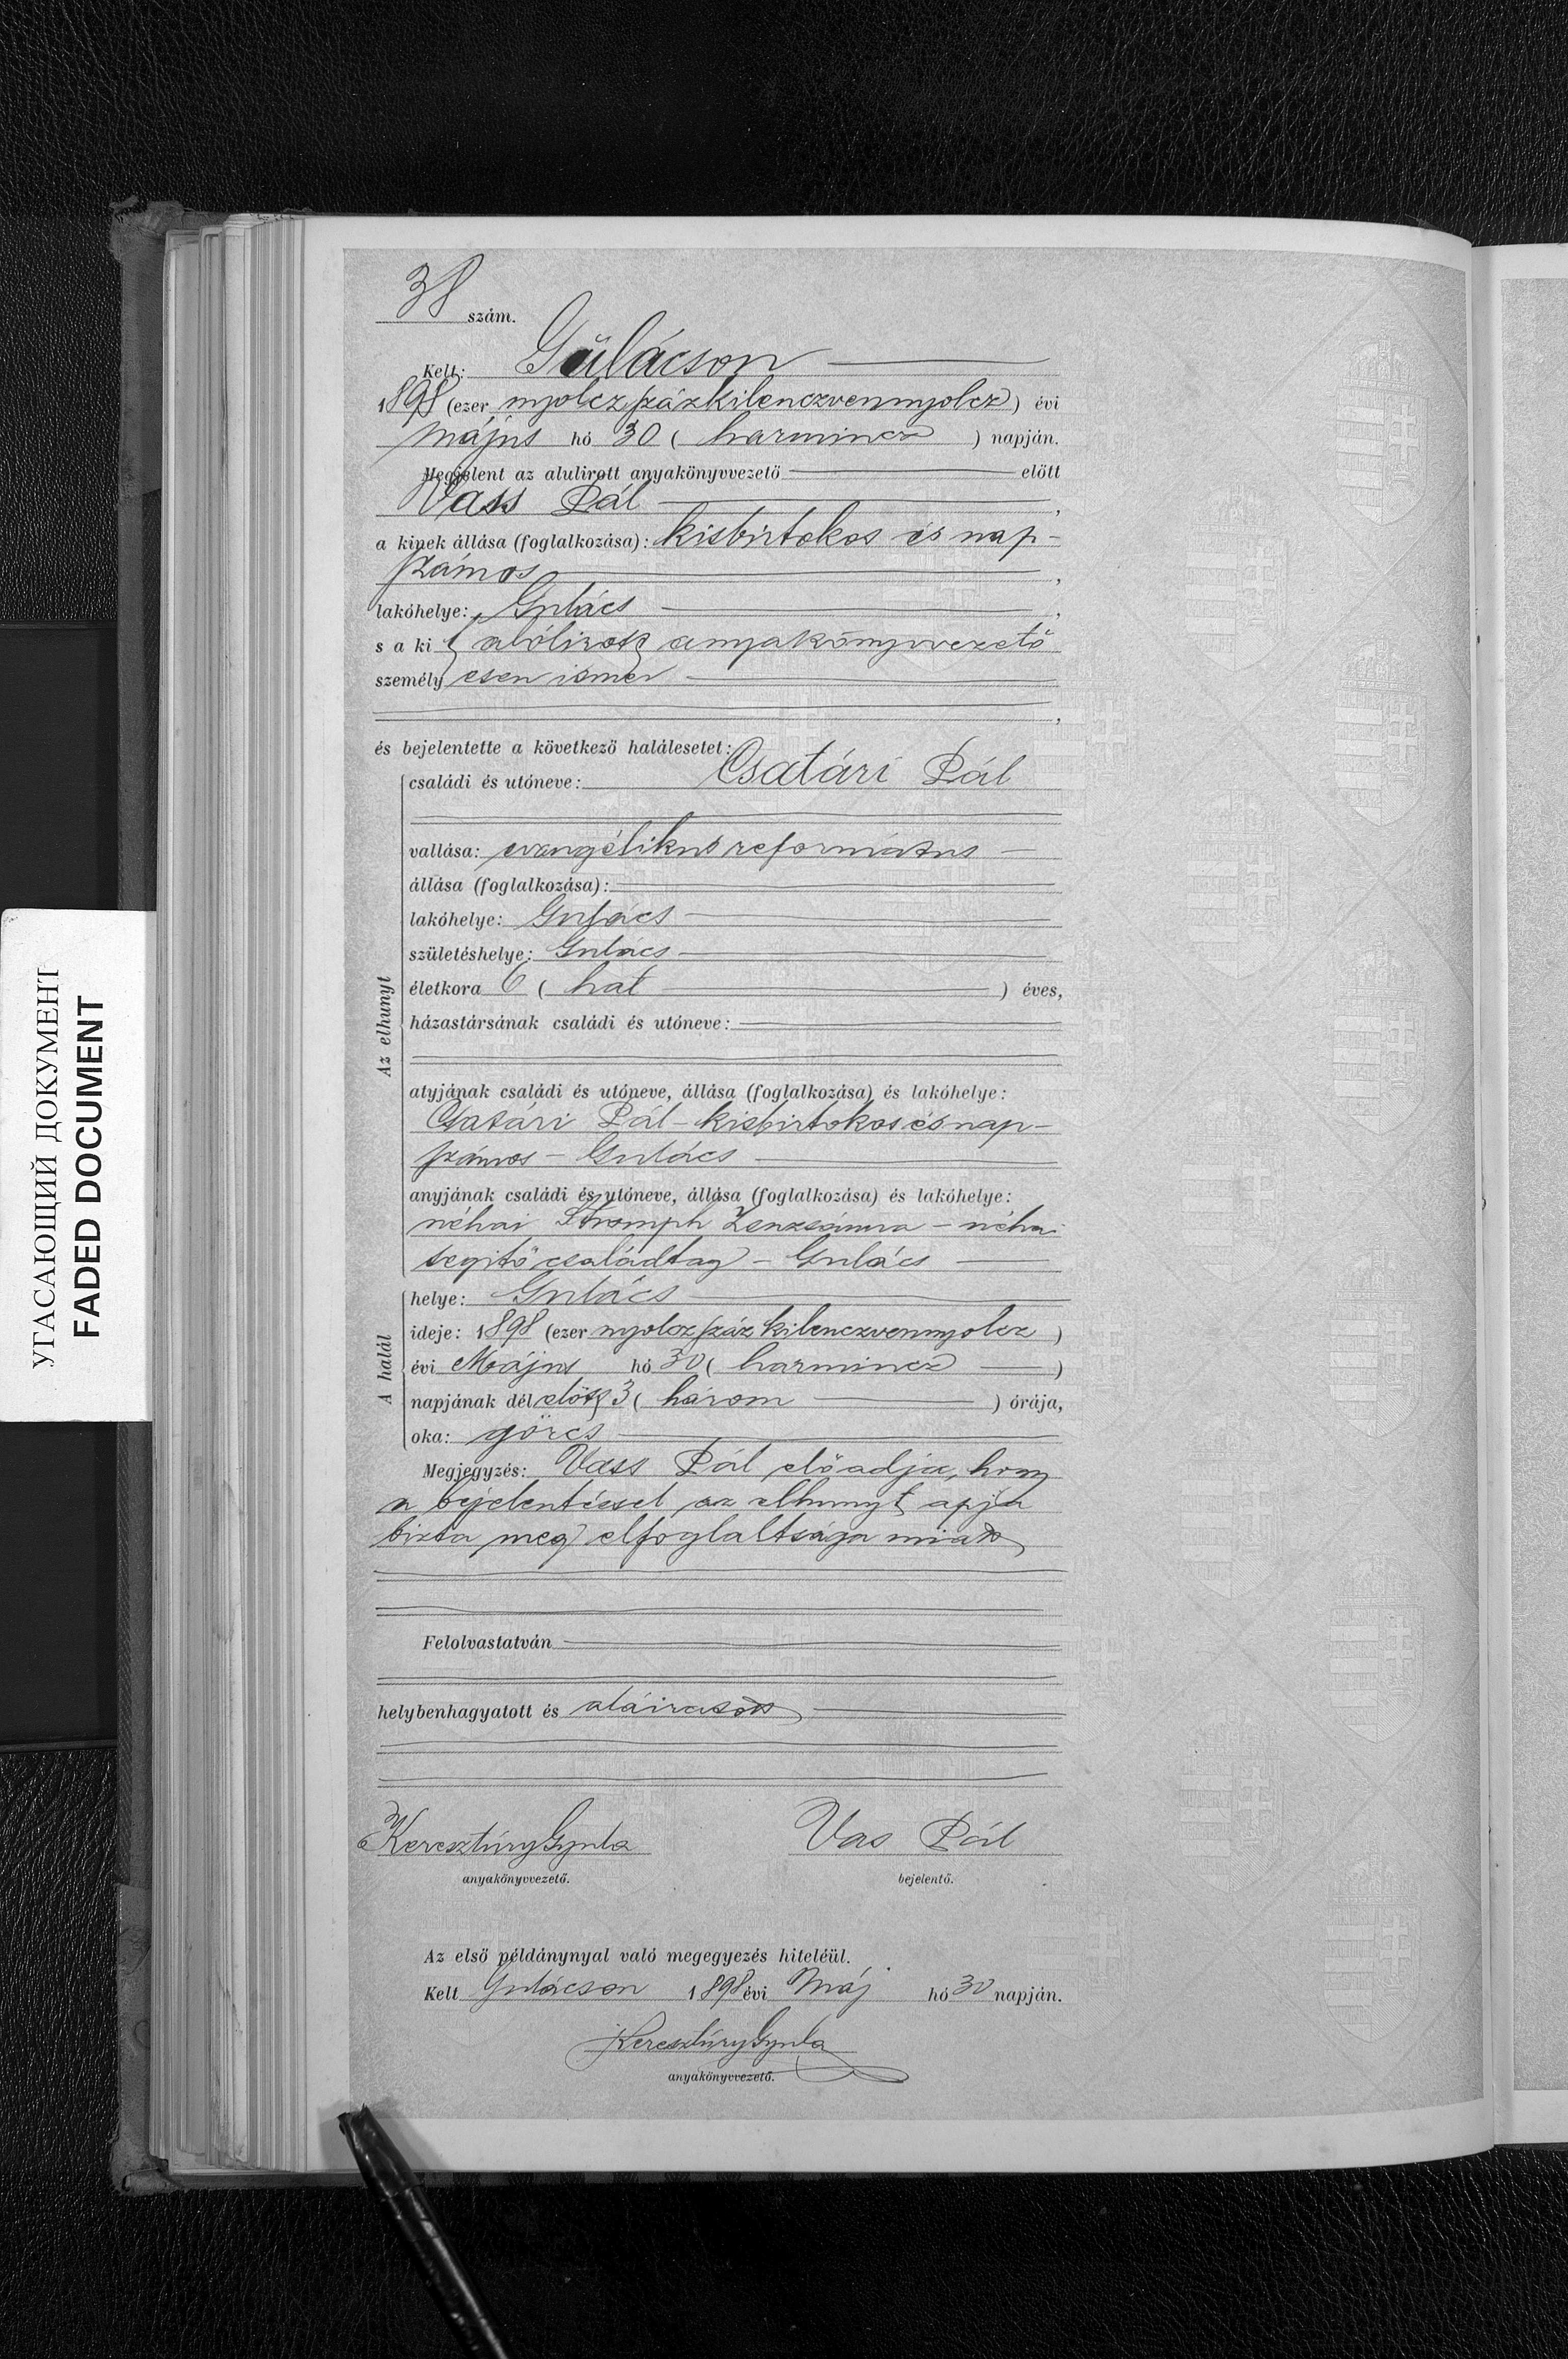 38 szám.
Kelt: Gulácson
1898 (ezer nyolczszázkilenczvennyolcz) évi
május hó 30 ( harmincz ) napján.
Megjelent az alulirott anyakönyvvezető előtt
Vass Pál ,
a kinek állása (foglalkozása): kisbirtokos és nap-
számos ,
lakóhelye: Gulács ,
s a ki alólirott anyakönyvvezető
személy esen ismer
,
és bejelentette a következő halálesetet:
családi és utóneve: Csatári Pál
vallása: evangélikus református
állása (foglalkozása):
lakóhelye: Gulács
születéshelye: Gulács
életkora 6 ( hat ) éves,
házastársának családi és utóneve:
Az elhunyt
atyjának családi és utóneve, állása (foglalkozása) és lakóhelye:
Csatári Pál - kisbirtokos és nap-
számos - Gulács
anyjának családi és utóneve, állása (foglalkozása) és lakóhelye:
néhai Stromph - néhai
segitő családtag - Gulács
A halál
helye: Gulács
ideje: 1898 (ezer nyolczszáz kilenczvennyolcz )
évi Május hó 30 ( harmincz )
napjának dél előtt 3 ( három ) órája,
oka: görcs
Megjegyzés: Vass Pál előadja, hogy
a bejelentéssel az elhunyt apja
bizta meg elfoglaltsága miatt
Felolvastatván
helybenhagyatott és aláiratott
Keresztúry Gyula
anyakönyvvezető.
Vas Pál
bejelentő.
Az első példánynyal való megegyezés hiteléül.
Kelt Gulácson 1898 évi Máj hó 30 napján.
Keresztúry Gyula
anyakönyvvezető.
УГАСАЮЩИЙ ДОКУМЕНТ
FADED DOCUMENT